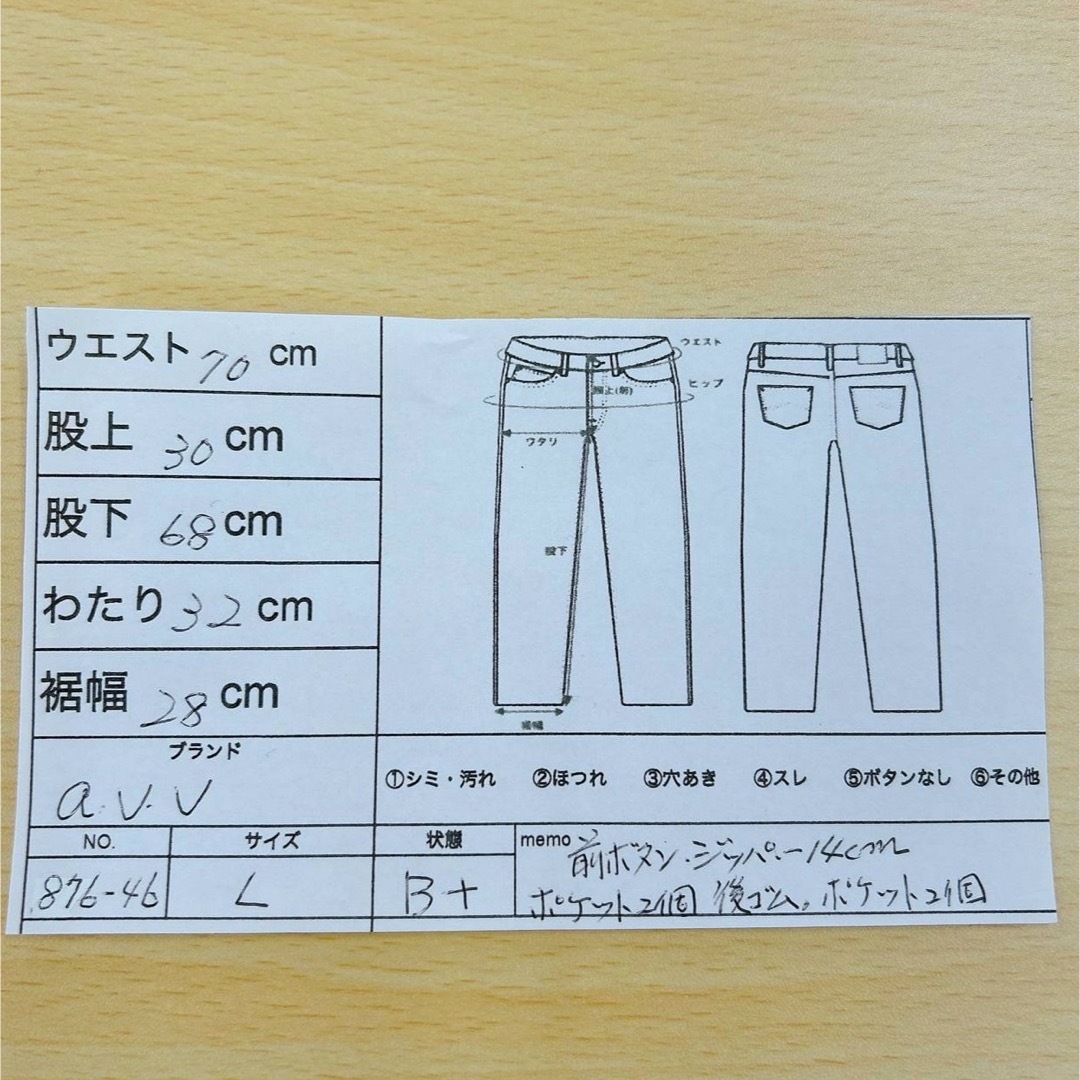 ウエスト 70 cm
股上 30 cm
股下 68 cm
わたり 32 cm
裾幅 28 cm
ウエスト
ヒップ
股上(前)
ワタリ
股下
裾幅
ブランド
a.v.v
①シミ・汚れ ②ほつれ ③穴あき ④スレ ⑤ボタンなし ⑥その他
NO. サイズ 状態
876-46 L B+
memo 前ボタン.ジッパー14cm
ポケット2個 後ゴム。ポケット2個